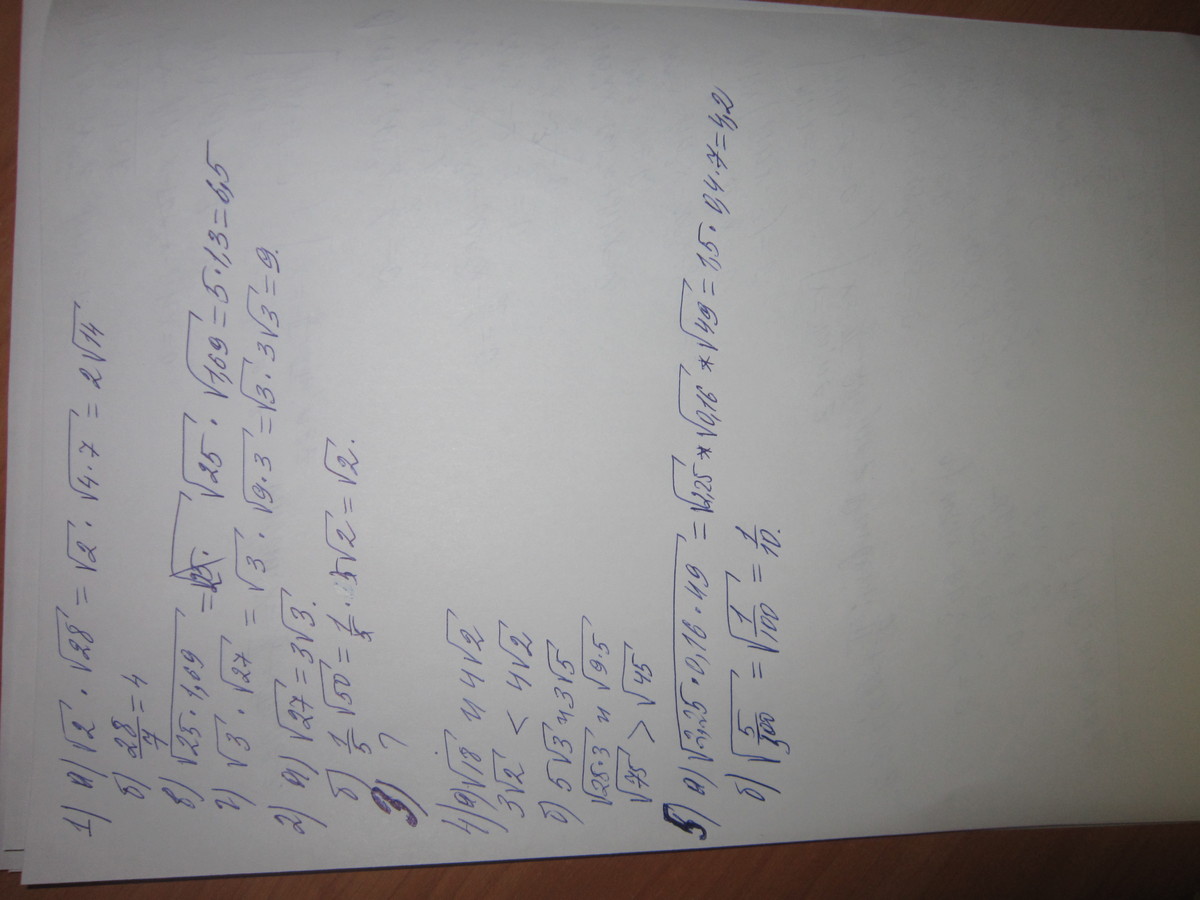 1) а) √2 · √28 = √2 · √4·7 = 2√14
б) 28/7 = 4
в) √25·1,69 = √25 · √1,69 = 5·1,3 = 6,5
г) √3 · √27 = √3 · √9·3 = √3 · 3√3 = 9.
2) а) √27 = 3√3.
б) 1/5 √50 = 1/5 · 5√2 = √2.
3) ?
4) а) √18 и 4√2
3√2 < 4√2
б) 5√3 и 3√5
√25·3 и √9·5
√75 > √45
5) а) √2,25·0,16·49 = √2,25 * √0,16 * √49 = 1,5 · 0,4 · 7 = 4,2
б) √5/500 = √1/100 = 1/10.